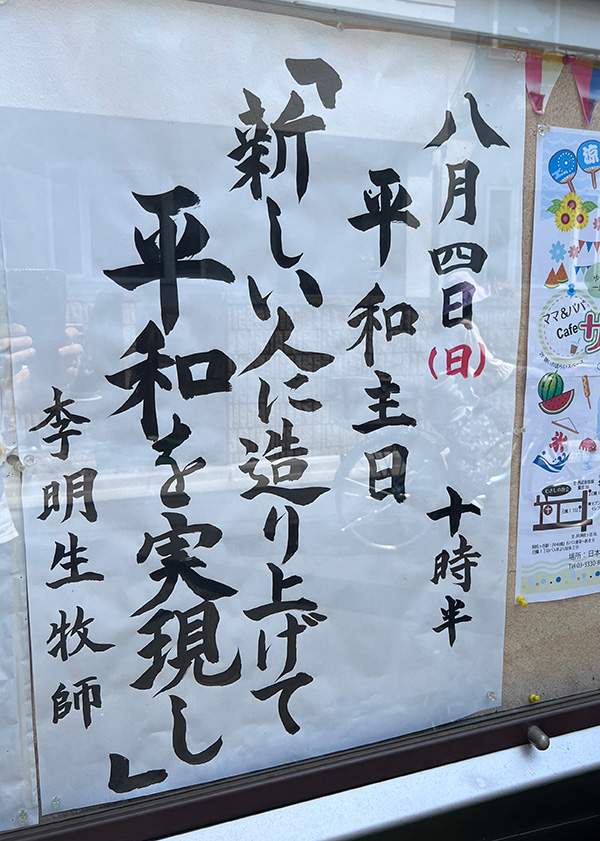 八月四日(日) 十時半
平和主日
「新しい人に造り上げて
平和を実現し」
李明生牧師
涼
ママ&パパ
Cafe
サ
氷
場所:日本